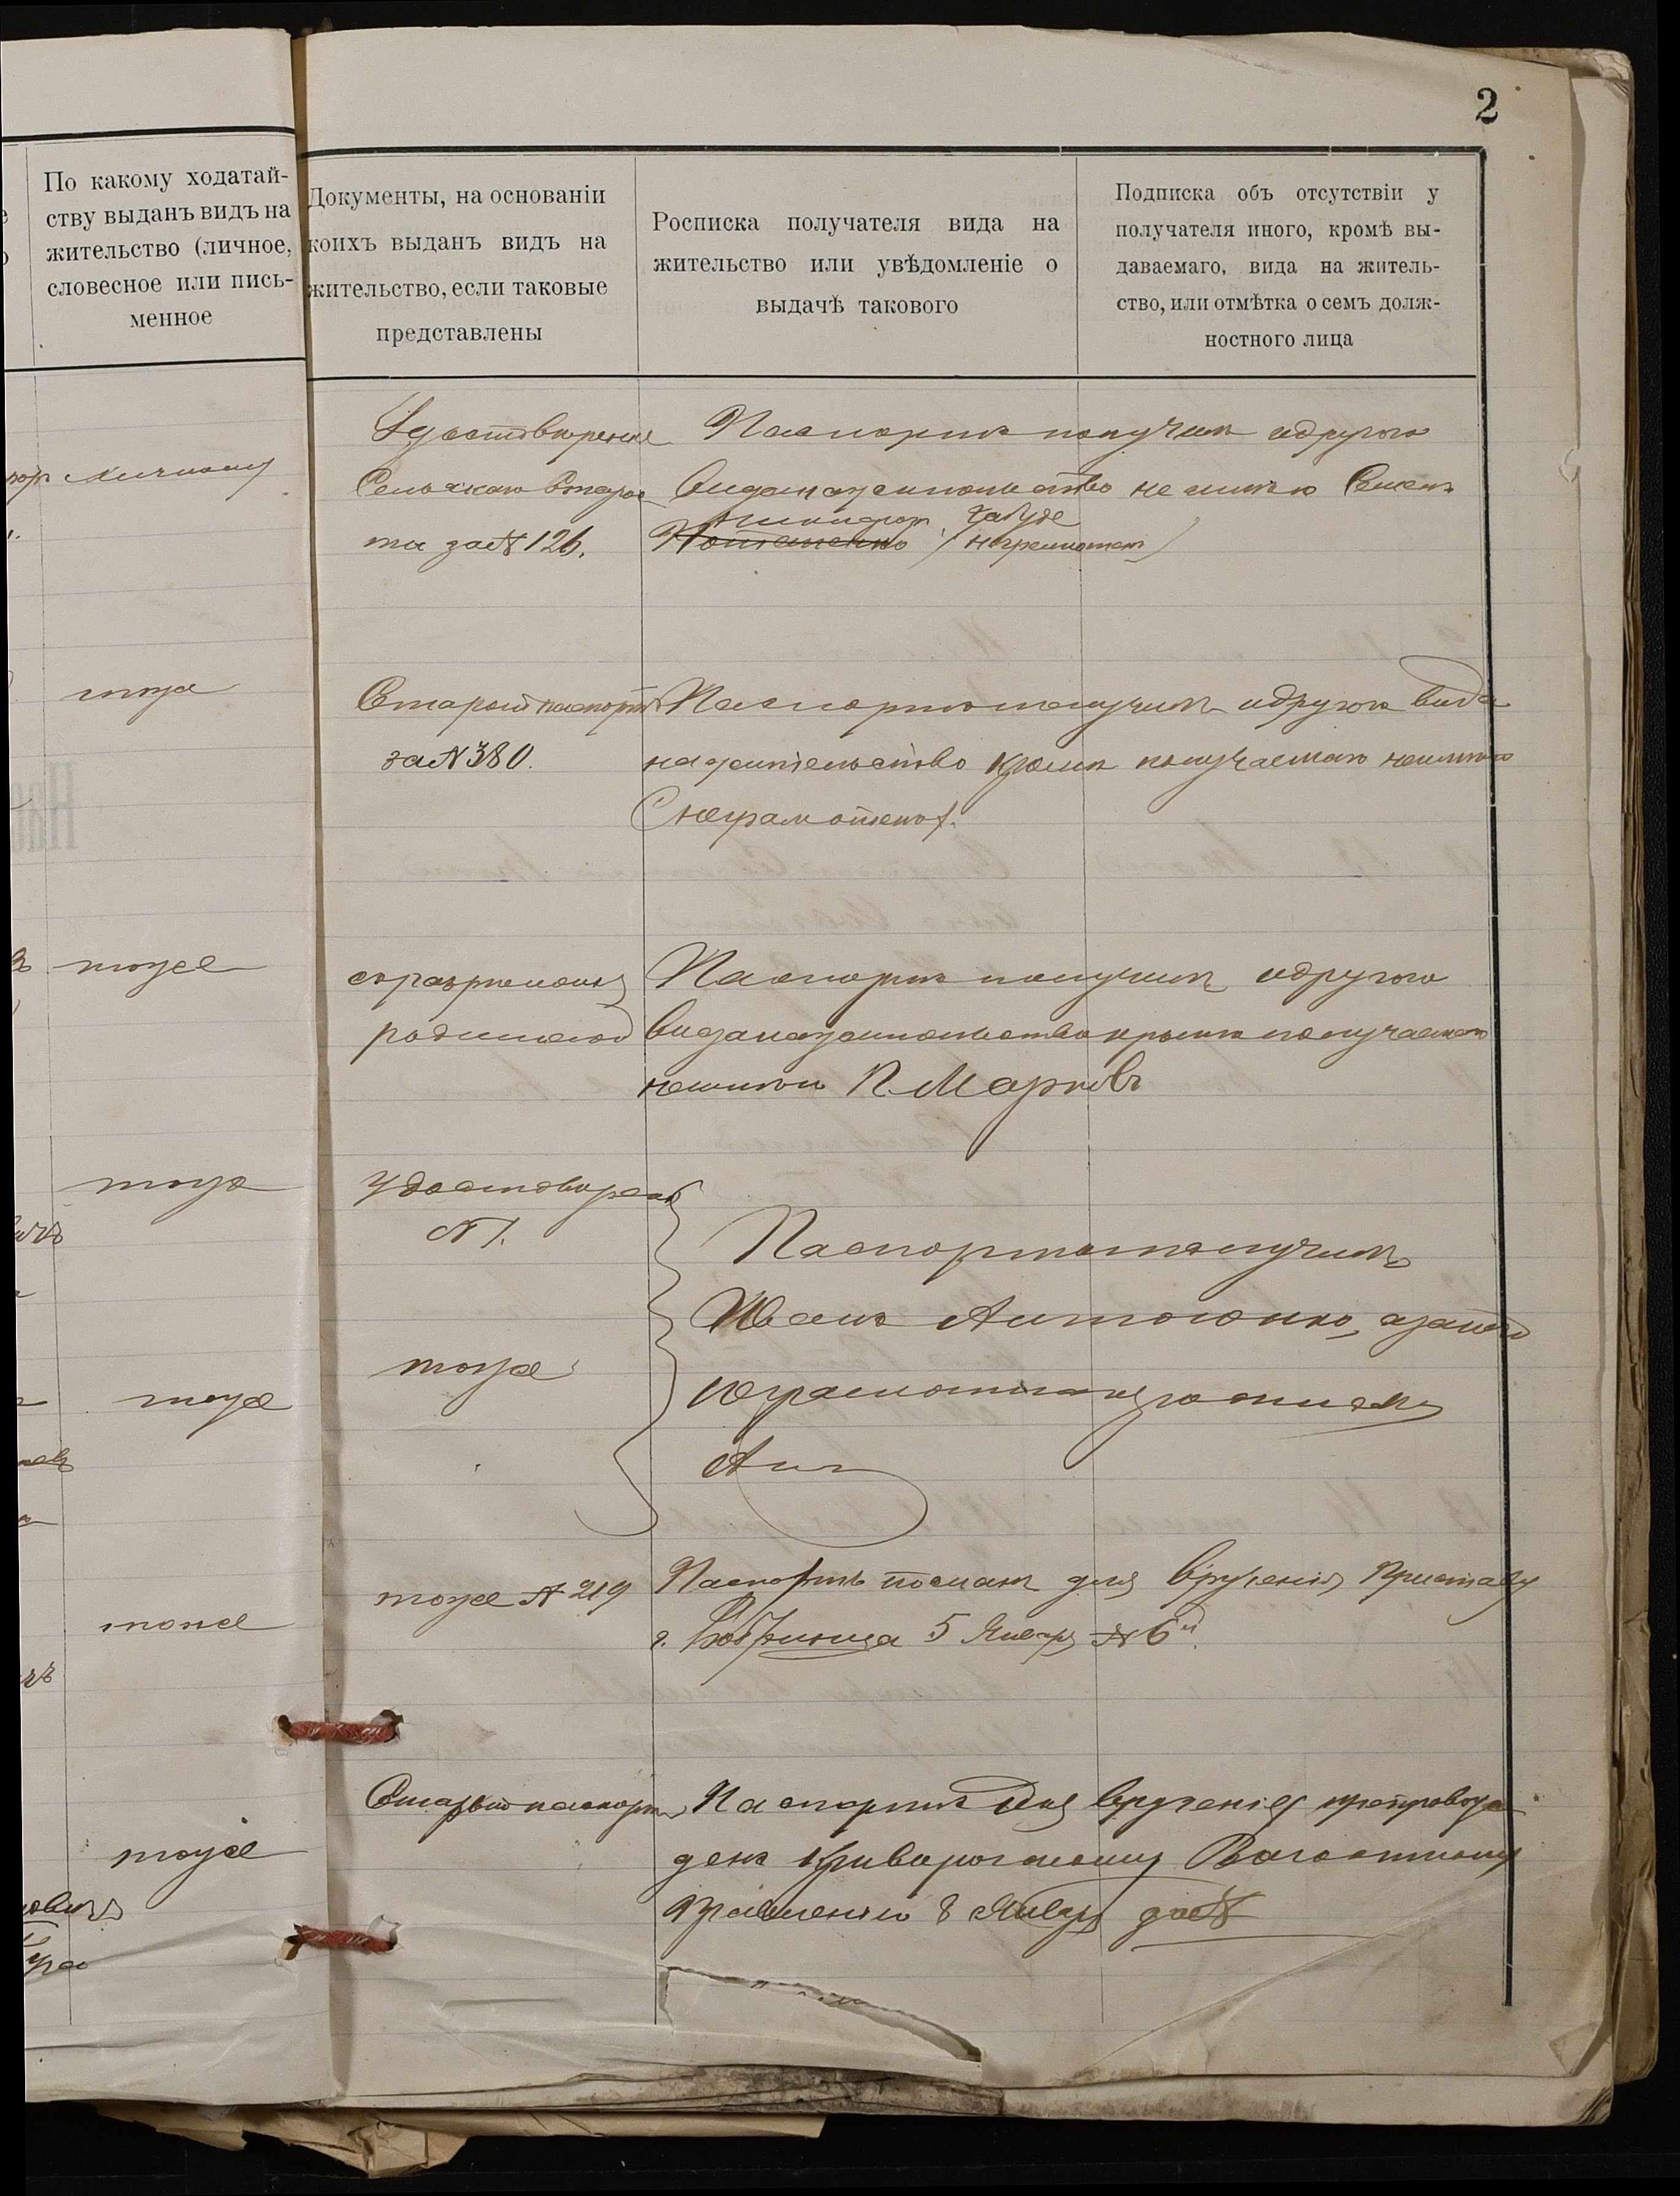 2
По какому ходатай-
ству выданъ видъ на
жительство (личное,
словесное или пись-
менное
Документы, на основаніи
коихъ выданъ видъ на
жительство, если таковые
представлены
Росписка получателя вида на
жительство или увѣдомленіе о
выдачѣ такового
Подписка объ отсутствіи у
получателя иного, кромѣ вы-
даваемаго, вида на житель-
ство, или отмѣтка о семъ долж-
ностного лица
личному
Удостовереніе
Сельскаго Старос
ты за № 126.
Паспортъ получилъ и другого
вида на жительство не имѣю Семенъ
неграмотен
тоже
Старый паспортъ
за № 380.
Паспортъ получилъ и другого вида
на жительство кромѣ получаемаго неимѣю
(неграмотенъ).
тоже
съ разрѣшенія
родителей
Паспортъ получилъ и другого
вида на жительство кромѣ получаемаго
неимѣю П. Марковъ
тоже
удостоверен
№ 1.
тоже
тоже
Паспортъ получилъ
Иванъ Антоненко, а за него
неграмотнаго
Ан
тоже
тоже № 219
Паспортъ посланъ для врученія Приставу
г. Бобринца 5 Января № 6й
тоже
Старый паспортъ
Паспортъ для врученія препровож
денъ Криворожскому Волостному
Правленію 8 Января за №